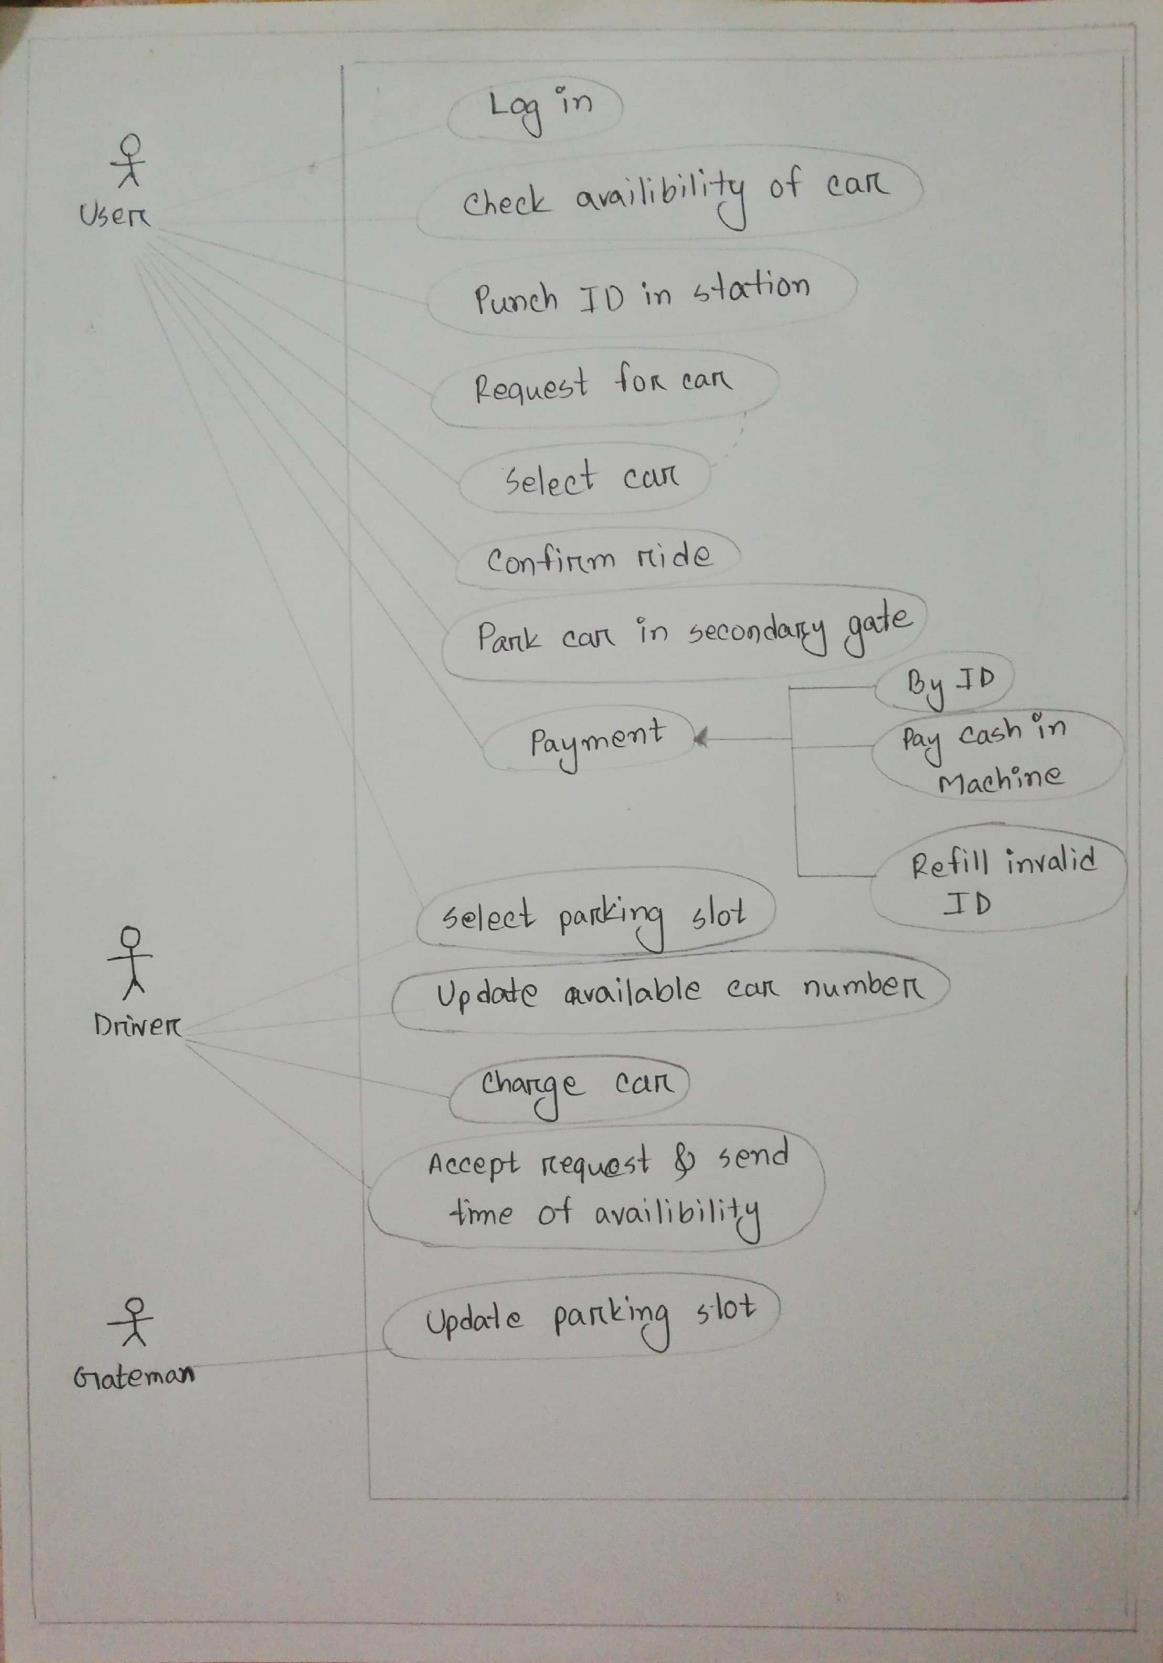 Log in
User
Check availibility of car
Punch ID in station
Request for car
Select car
Confirm ride
Park car in secondary gate
By ID
Payment
Pay cash in
Machine
Refill invalid
ID
Select parking slot
Driver
Update available car number
Charge car
Accept request & send
time of availibility
Update parking slot
Gateman